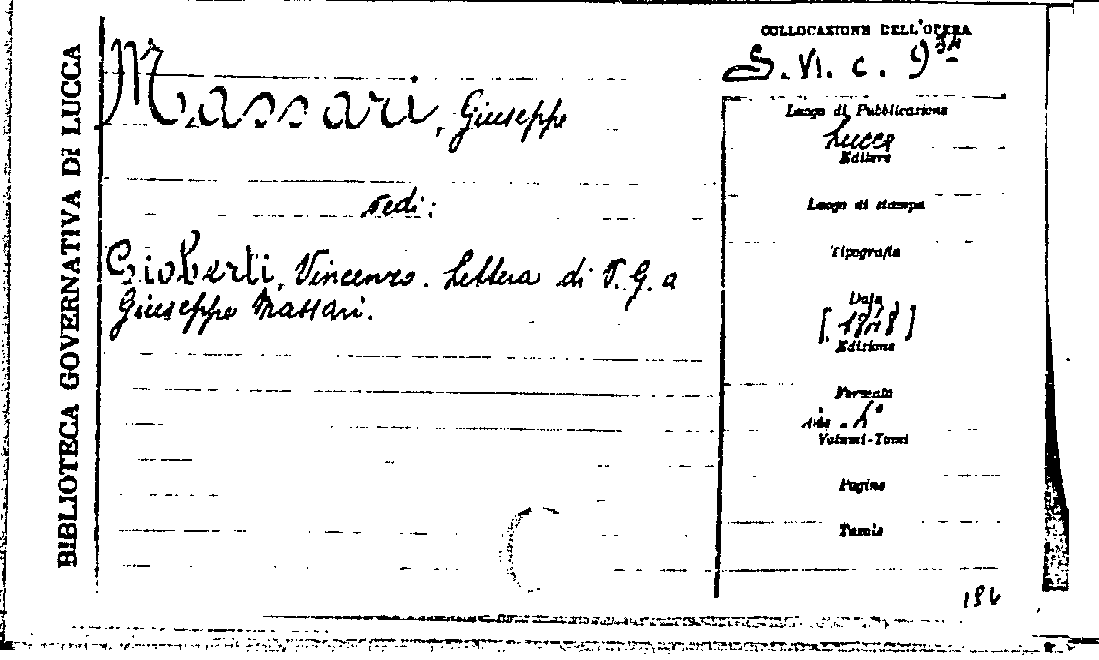 BIBLIOTECA GOVERNATIVA DI LUCCA
Massari, Giuseppe
vedi:
Gioberti, Vincenzo. Lettera di V. G. a
Giuseppe Massari.
COLLOCAZIONE DELL'OPERA
S. VI. c. 9
Luogo di Pubblicazione
Lucca
Editore
Luogo di stampa
Tipografia
Data
[1848]
Edizione
Formato
in
Volumi-Tomi
Pagine
Tavole